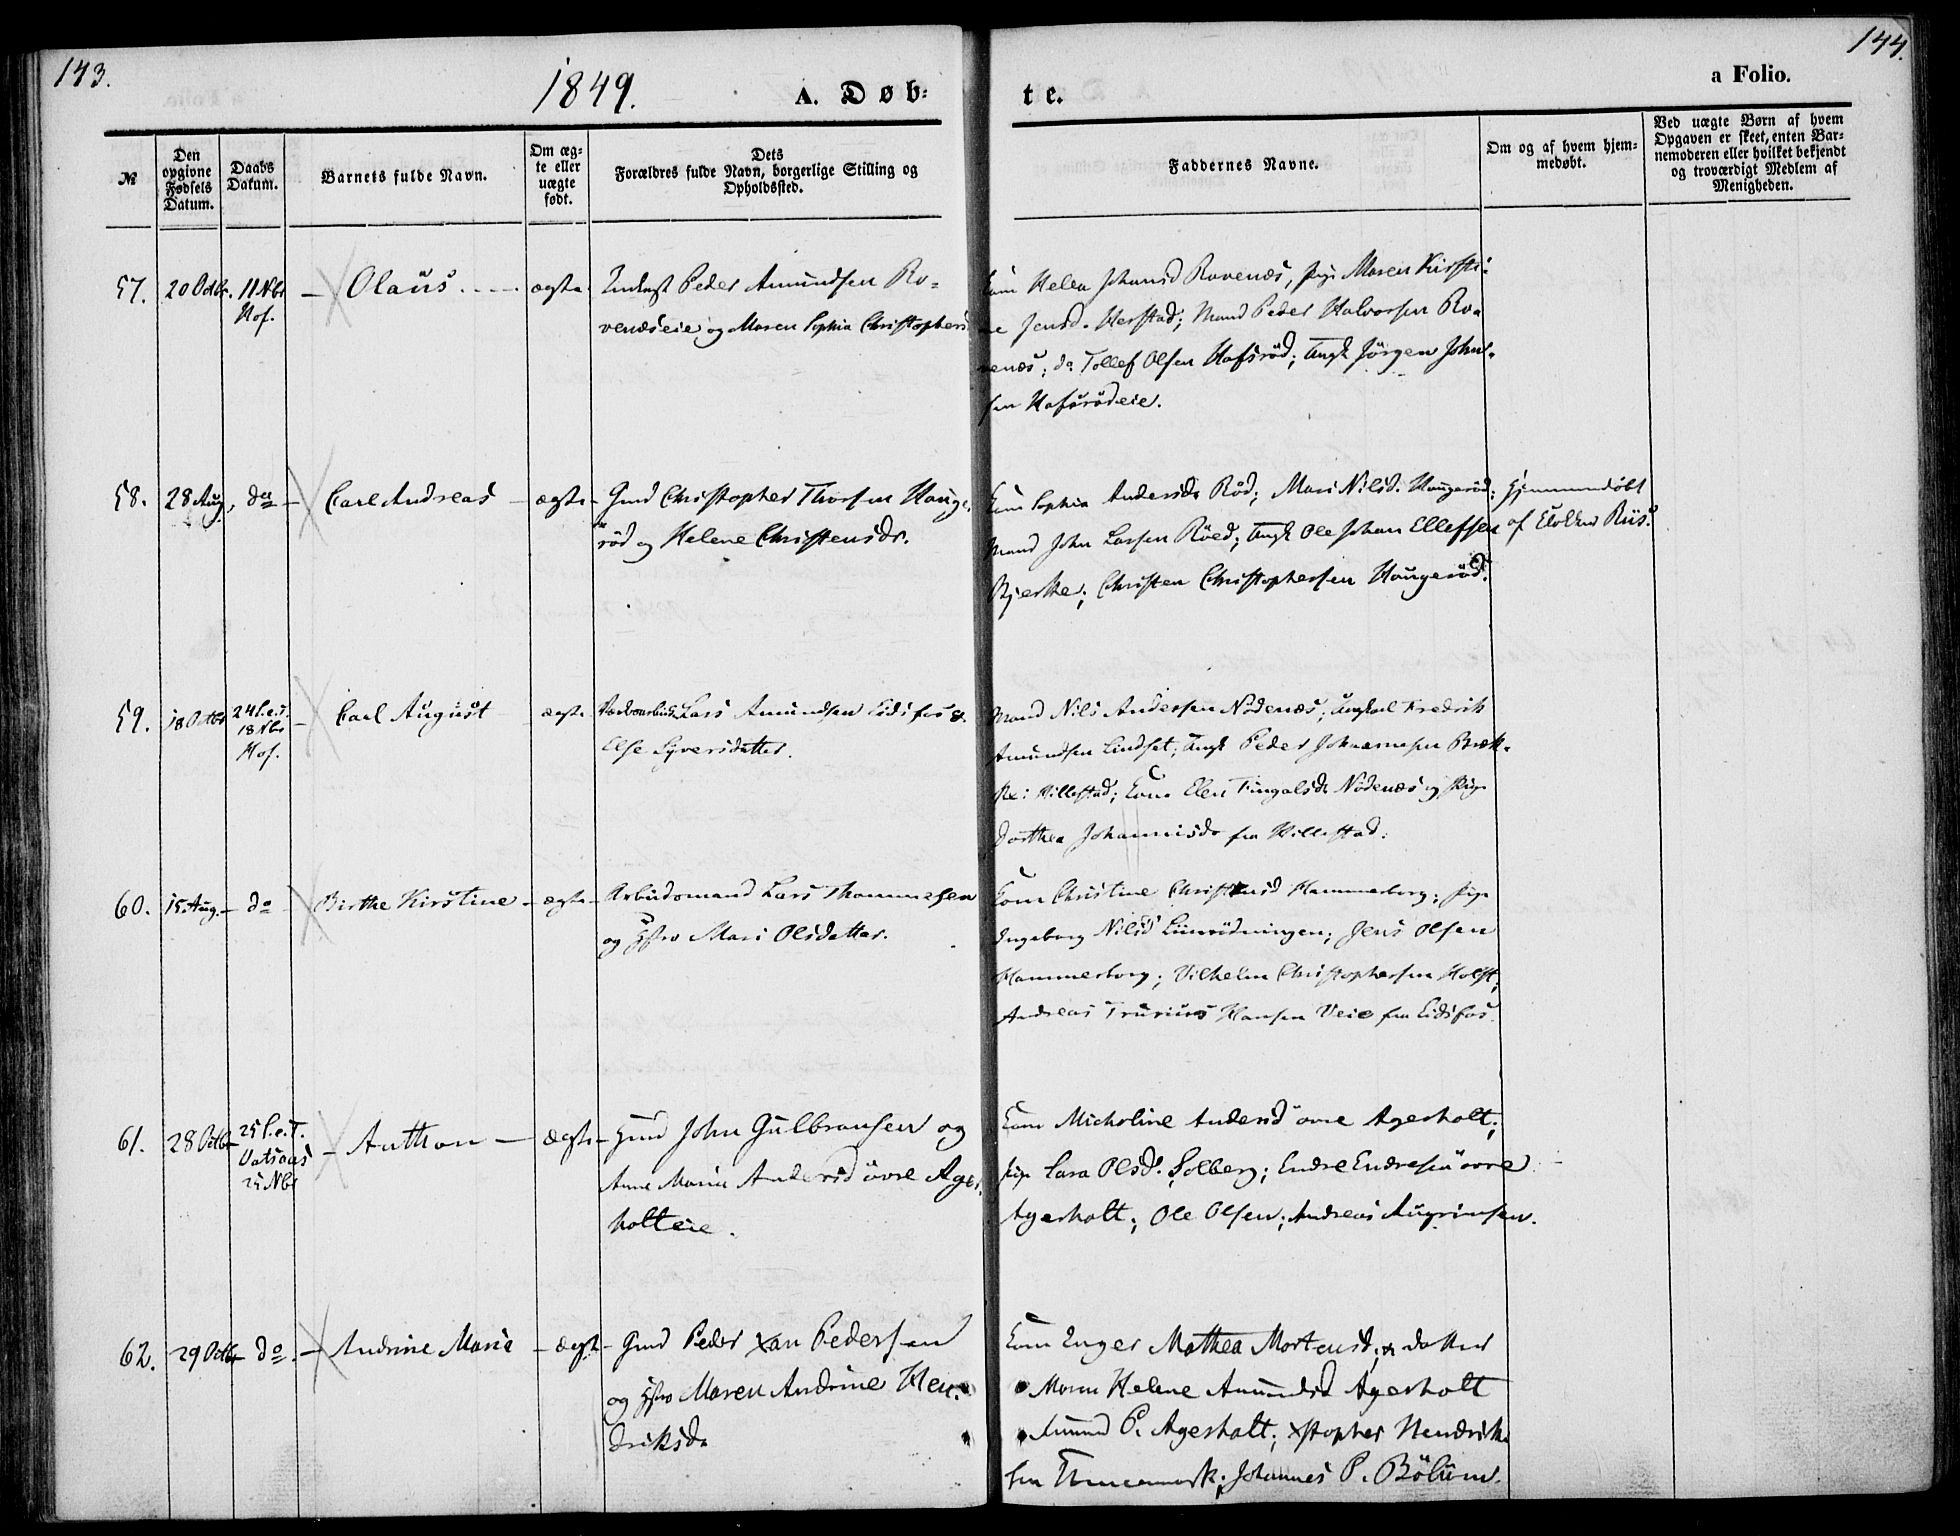 143.
1849.
A. Døb-
te.
a Folio.
144.
№
Den
opgivne
Fødsels
Datum.
Daabs
Datum.
Barnets fulde Navn.
Om æg-
te eller
uægte
født.
Dets
Forældres fulde Navn, borgerlige Stilling og
Opholdssted.
Faddernes Navne.
Om og af hvem hjem-
medøbt.
Ved uægte Børn af hvem
Opgaven er skeet, enten Bar-
nemoderen eller hvilket bekjendt
og troværdigt Medlem af
Menigheden.
57. 20 Octbr. 11 Nbr Olaus ægte Peder Amundsen Ro-
Hof.
venæseie og Maren Sophia Christophersd
Helea Johansd Rovenæs, pige Maren Kirsti-
ne Jensd. Herstad; Mand Peder Halvorsen Ro-
venæs; do Tollef Olsen Hafsrød; Ungk Jörgen John-
sen Hafsrødeie.
58. 28 Aug. do Carl Andreas ægte Gmd Christopher Thorsen Houge-
rød og Helene Christensdr.
Kone Sophia Andersdr Rød; Mari Nilsd. Hougerød;
Mand John Larsen Röed; Ungk Ole Johan Ellefsen
Bjerke; Christen Christophersen Hougeröd.
Hjemmedøbt
af Klokker Riis.
59. 18 Octbr 24 S.e.T. Carl August ægte Lars Amundsen Eidsfos &
18 Nbr
Hof.
Else Syversdatter.
Mand Nils Andersen Nodenæs; Ungkarl Fredrik
Amundsen Lindset; Ungk Peder Johannesen Bræk-
ke i Hillestad; Kone Elen Fingalsdr Nodenæs og Pige
Dorthea Johannisdr fra Hillestad.
60. 15 Aug. do Birthe Kirstine ægte Arbeidsmand Lars Thommesen
og Hstro Mari Olsdatter.
Kone Christine Christensd Hammerborg; Pige
Ingeborg Nilsd Liinrödningen; Jens Olsen
Hammerborg; Vilhelm Christophersen Holst;
Andreas Trurius Hansen Veie fra Eidsfos.
61. 28 Octbr 25 S.e.T. Anthon ægte Gmd John Gulbransen og
Vatsaas
25 Nbr
Anne Maria Andersd övre Ager-
holteie.
Kone Micheline Andersd övre Agerholt;
Pige Lara Olsd. Solberg; Endre Endresen övre
Agerholt; Ole Olsen; Andreas Augrimsen.
62. 29 Octbr do. Andrine Marie ægte Gmd Peder Xan Pedersen
og Hstro Maren Andrine Hen-
driksdr
Kone Enger Mathea Mortensd; datter
Maren Helene Amundsd Agerholt
Amund P. Agerholt; Xstopher Hendrik-
sen; Johannes P. Bölum.